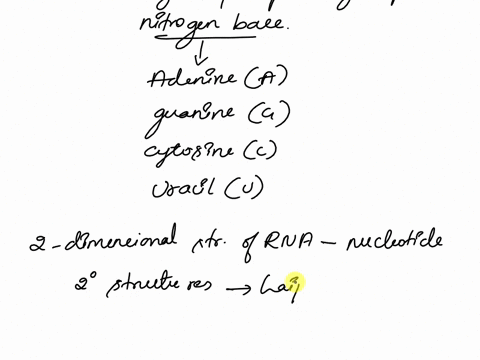 nitrogen base.
Adenine (A)
guanine (G)
cytosine (C)
Uracil (U)
2-dimensional str. of RNA – nucleotide
2° structures → hai